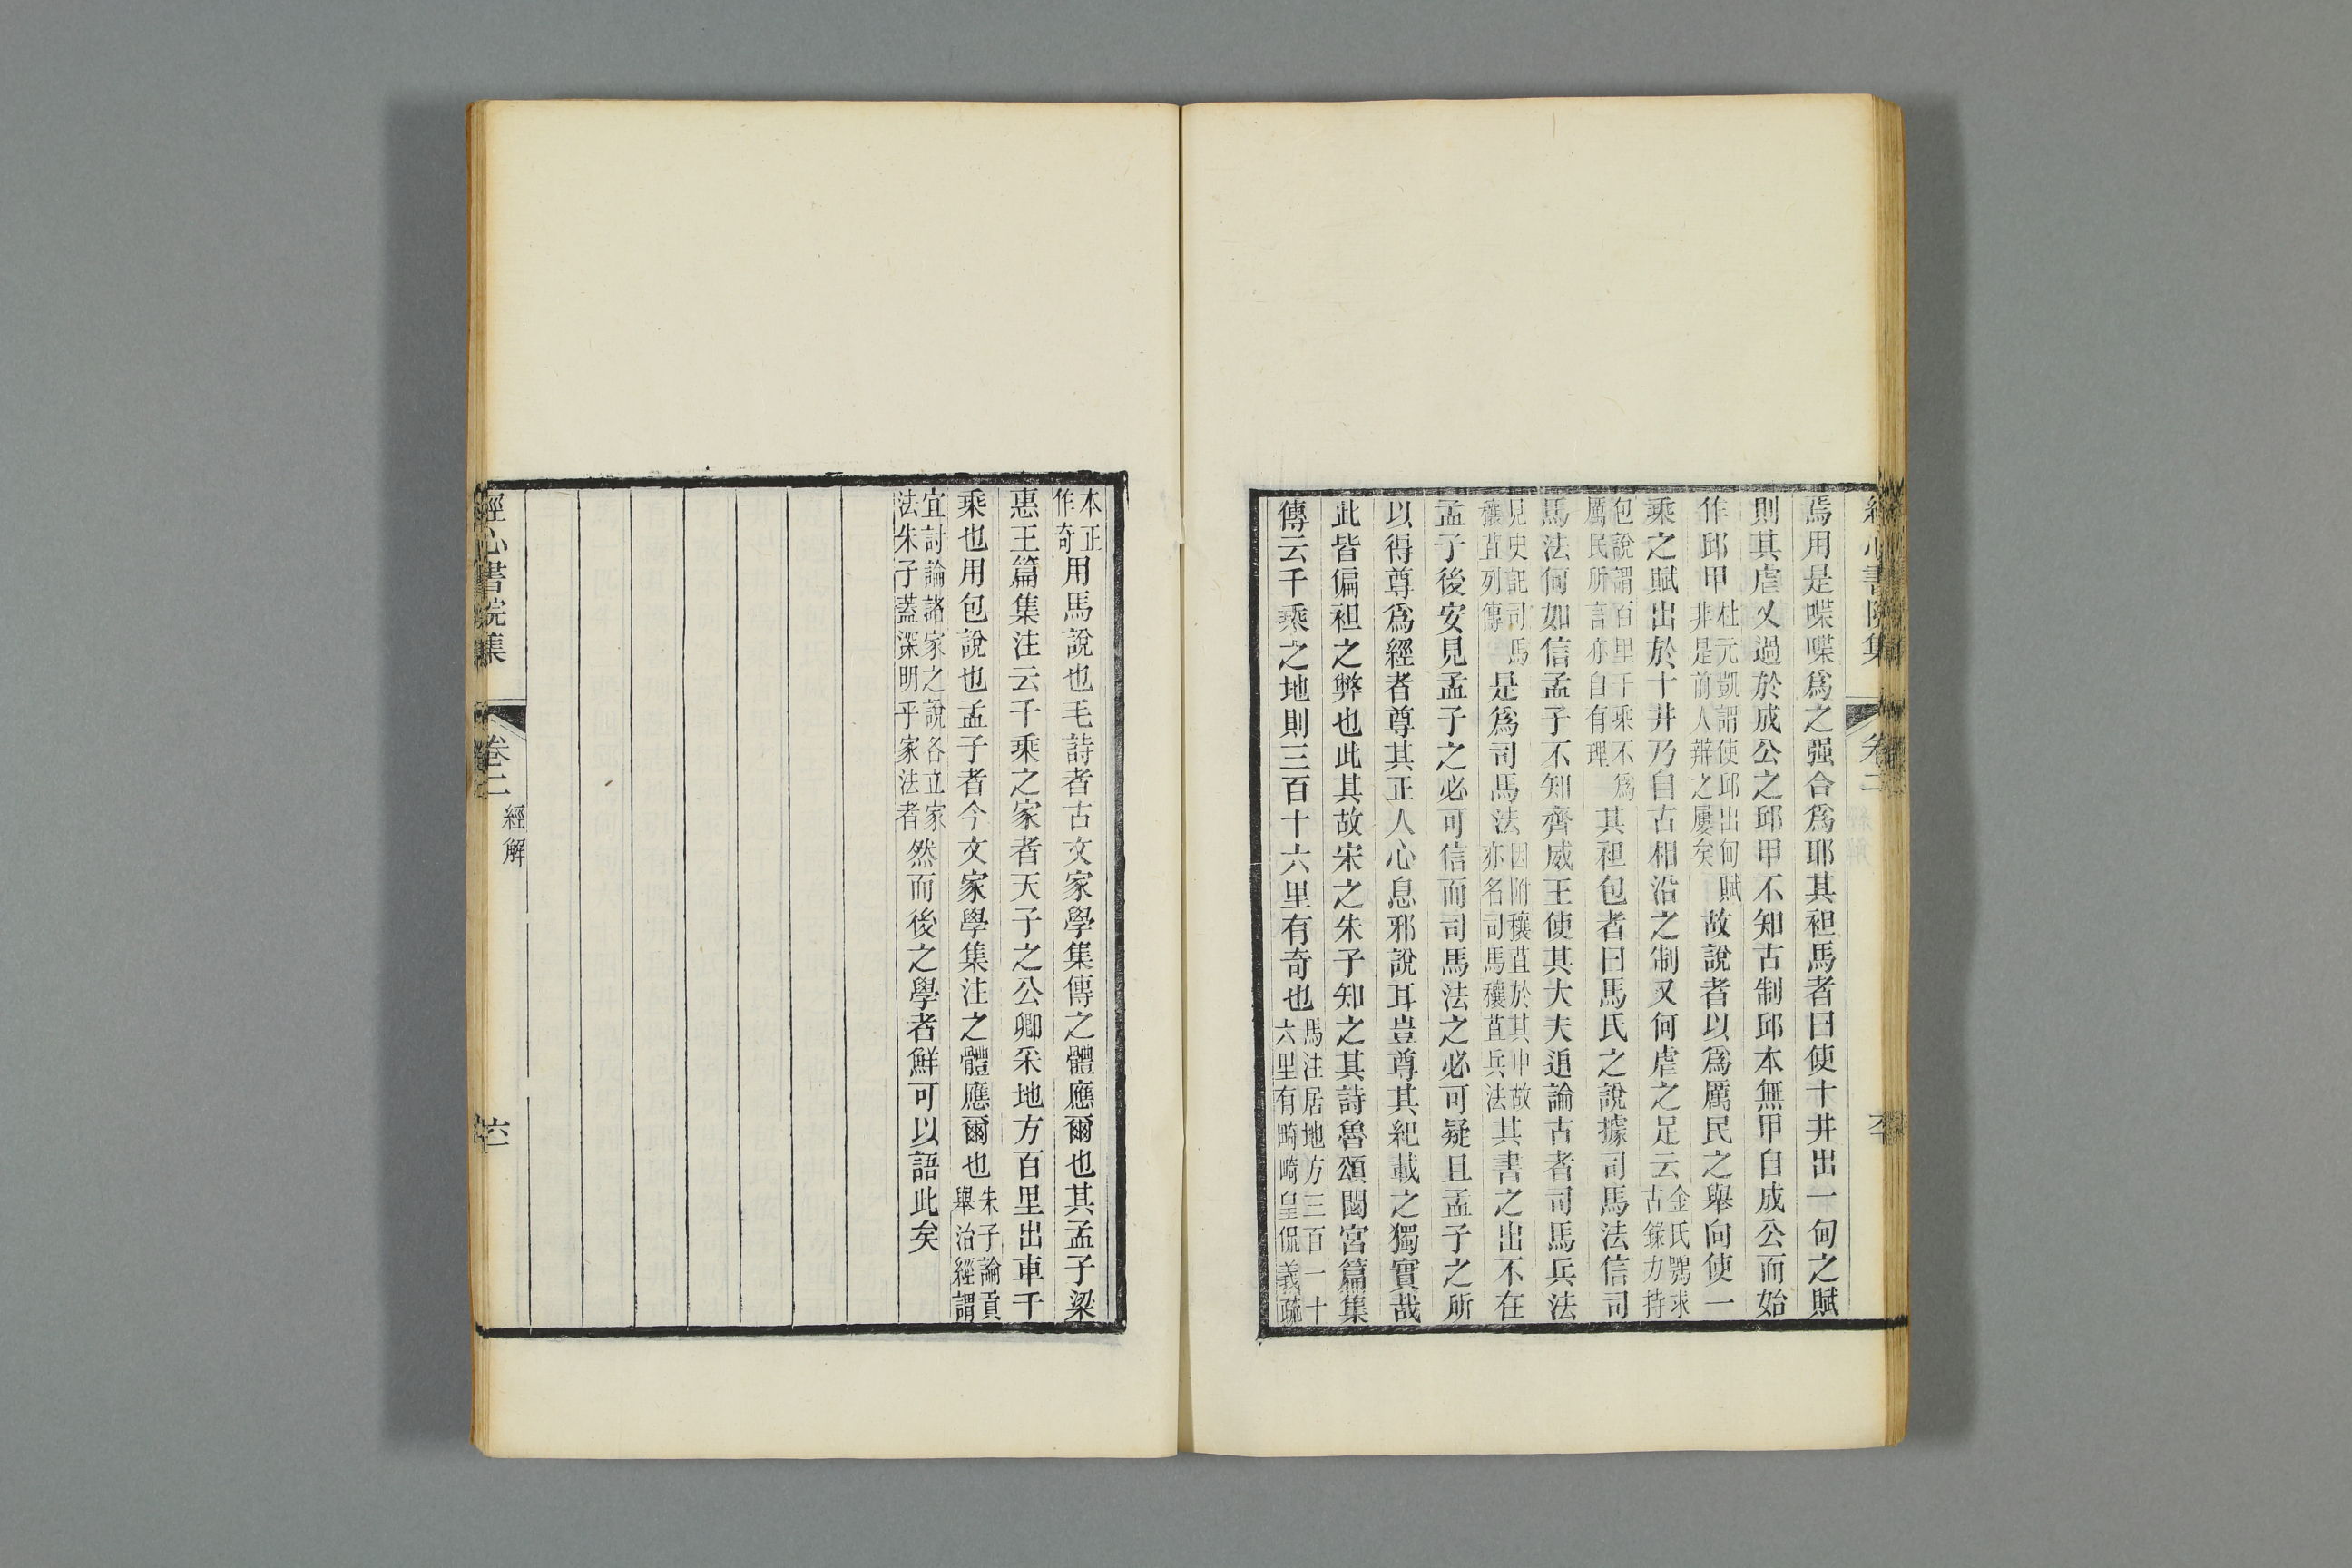 經心書院集 卷二
焉用是喋喋爲之强合爲耶其袒馬者曰使十井出一甸之賦
則其虐又過於成公之邱甲不知古制邱本無甲自成公而始
作邱甲杜元凱謂使邱出甸賦非是前人辯之屢矣故說者以爲厲民之舉向使一
乘之賦出於十井乃自古相沿之制又何虐之足云金氏鶚求古錄力持
包說謂百里千乘不爲厲民所言亦自有理其袒包者曰馬氏之說據司馬法信司
馬法何如信孟子不知齊威王使其大夫追論古者司馬兵法
見史記司馬穰苴列傳是爲司馬法因附穰苴於其中故亦名司馬穰苴兵法其書之出不在
孟子後安見孟子之必可信而司馬法之必可疑且孟子之所
以得尊爲經者尊其正人心息邪說耳豈尊其紀載之獨實哉
此皆偏袒之弊也此其故宋之朱子知之其詩魯頌閟宮篇集
傳云千乘之地則三百十六里有奇也馬注居地方三百一十六里有畸畸皇侃義疏
本正作奇用馬說也毛詩者古文家學集傳之體應爾也其孟子梁
惠王篇集注云千乘之家者天子之公卿采地方百里出車千
乘也用包說也孟子者今文家學集注之體應爾也朱子論貢舉治經謂
宜討論諸家之說各立家法朱子蓋深明乎家法者然而後之學者鮮可以語此矣
經心書院集 卷二 經解